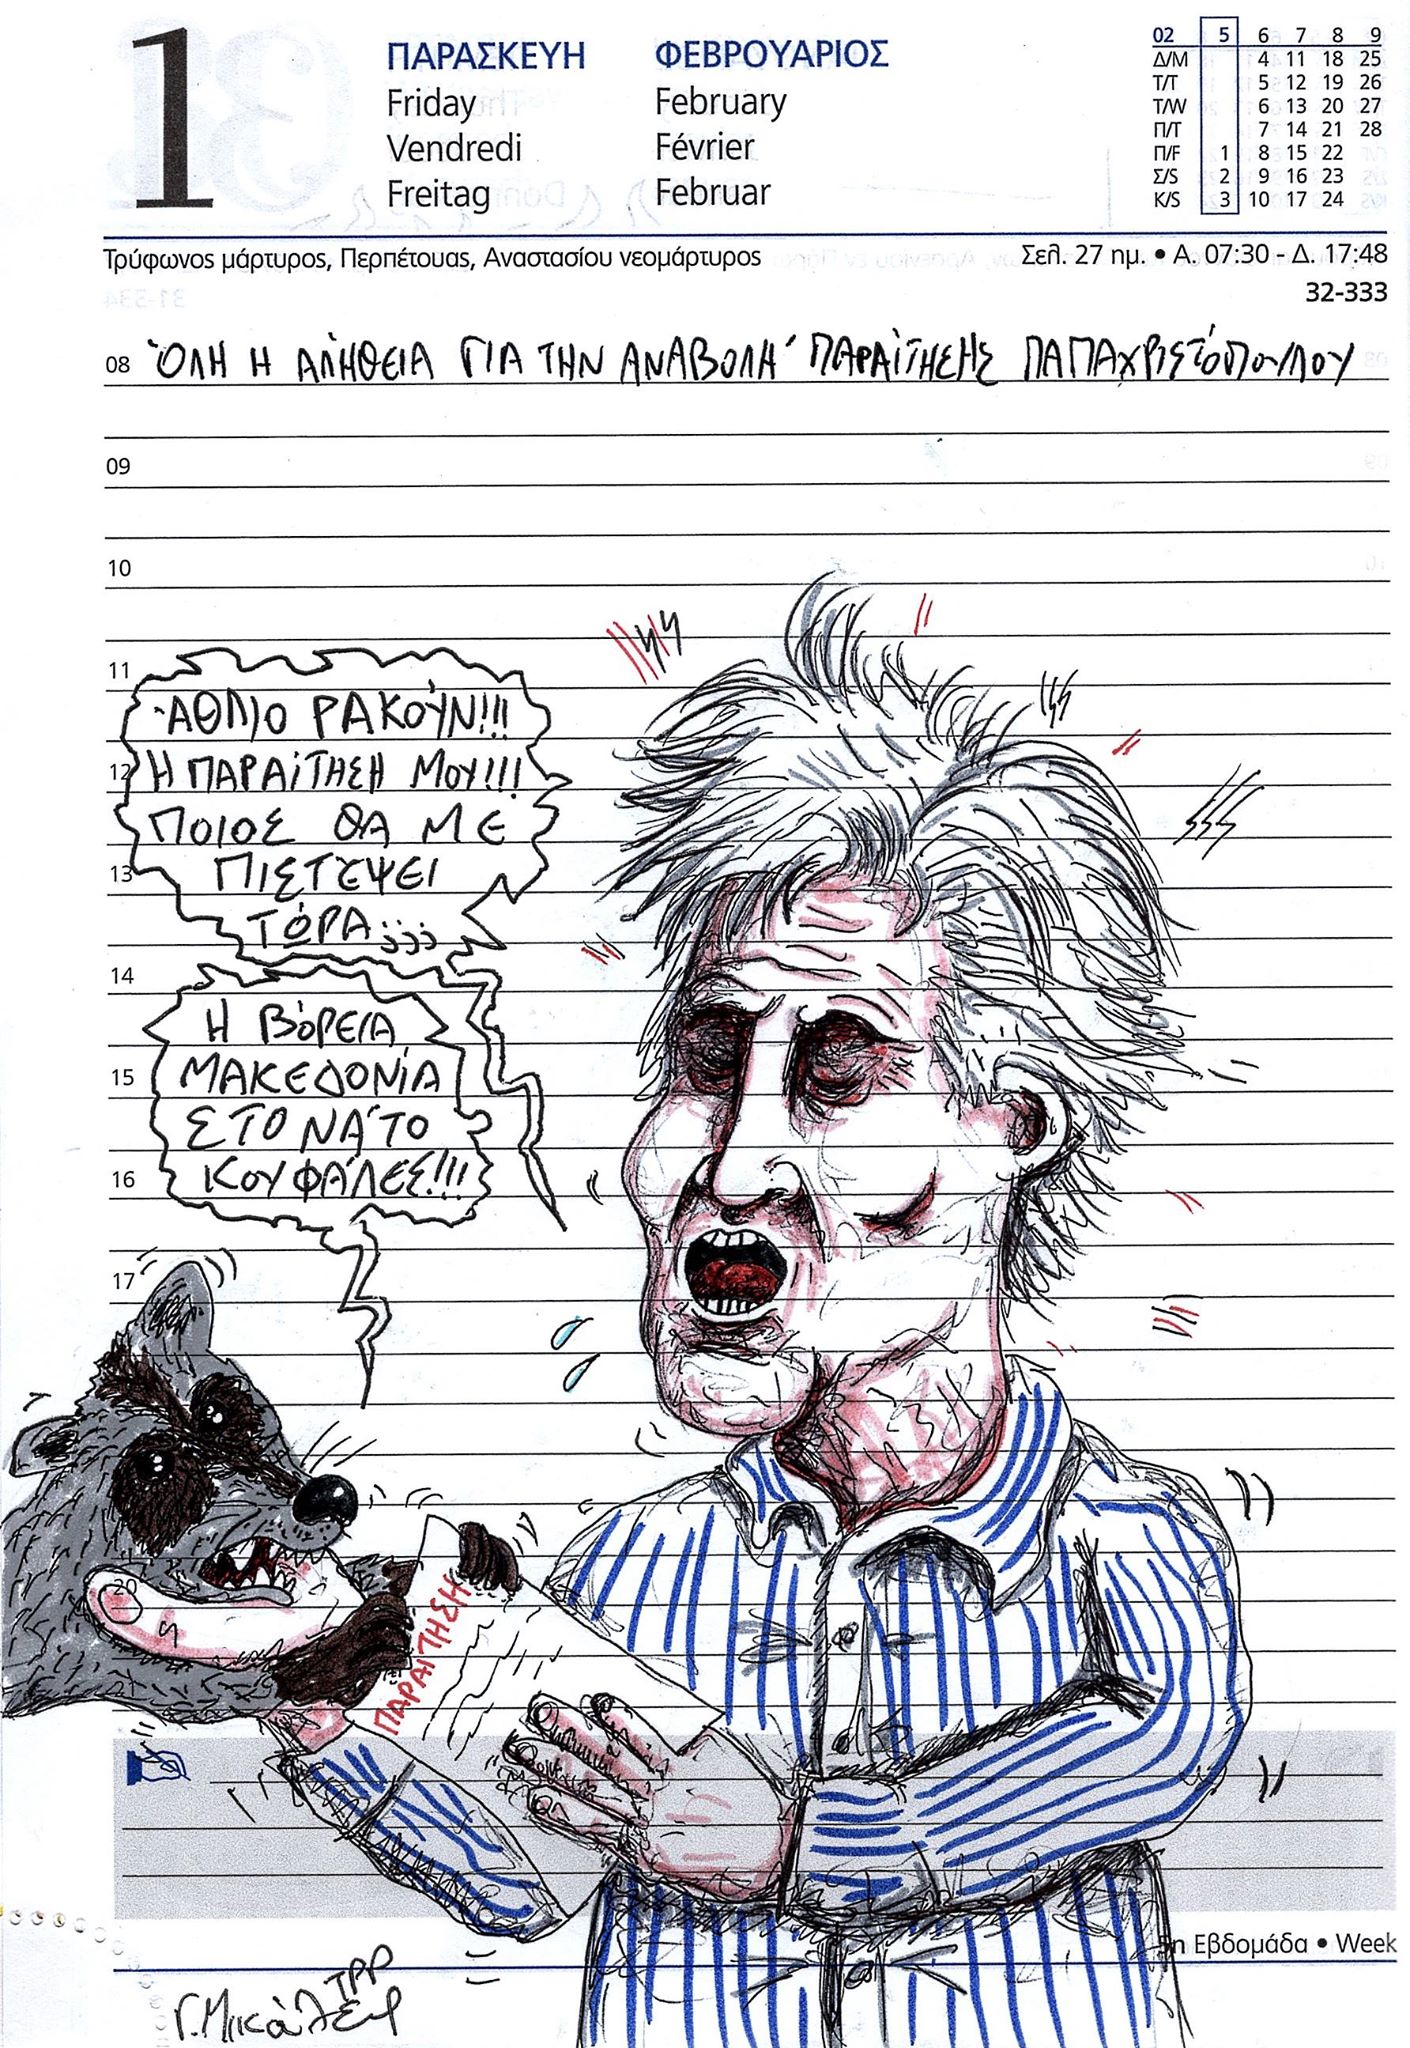 1
ΠΑΡΑΣΚΕΥΗ ΦΕΒΡΟΥΑΡΙΟΣ
Friday February
Vendredi Février
Freitag Februar
02 5 6 7 8 9
Δ/Μ 4 11 18 25
Τ/Τ 5 12 19 26
Τ/W 6 13 20 27
Π/Τ 7 14 21 28
Π/F 1 8 15 22
Σ/S 2 9 16 23
Κ/S 3 10 17 24
Τρύφωνος μάρτυρος, Περπέτουας, Αναστασίου νεομάρτυρος
Σελ. 27 ημ. • Α. 07:30 - Δ. 17:48
32-333
08 ΌΛΗ Η ΑΛΉΘΕΙΑ ΓΙΑ ΤΗΝ ΑΝΑΒΟΛΉ ΠΑΡΑΊΤΗΣΗΣ ΠΑΠΑΧΡΙΣΤΌΠΟΥΛΟΥ
09
10
11
ΆΘΛΙΟ ΡΑΚΟΎΝ!!!
12 Η ΠΑΡΑΊΤΗΣΗ ΜΟΥ!!!
ΠΟΙΟΣ ΘΑ ΜΕ
13 ΠΙΣΤΈΨΕΙ
ΤΏΡΑ;;;;
14
Η ΒΌΡΕΙΑ
15 ΜΑΚΕΔΟΝΊΑ
ΣΤΟ ΝΑ΄ΤΟ
16 ΚΟΥΦΆΛΕΣ!!!
17
20
ΠΑΡΑΙΤΗΣΗ
5η Εβδομάδα • Week
Γ. Μικάλεφ